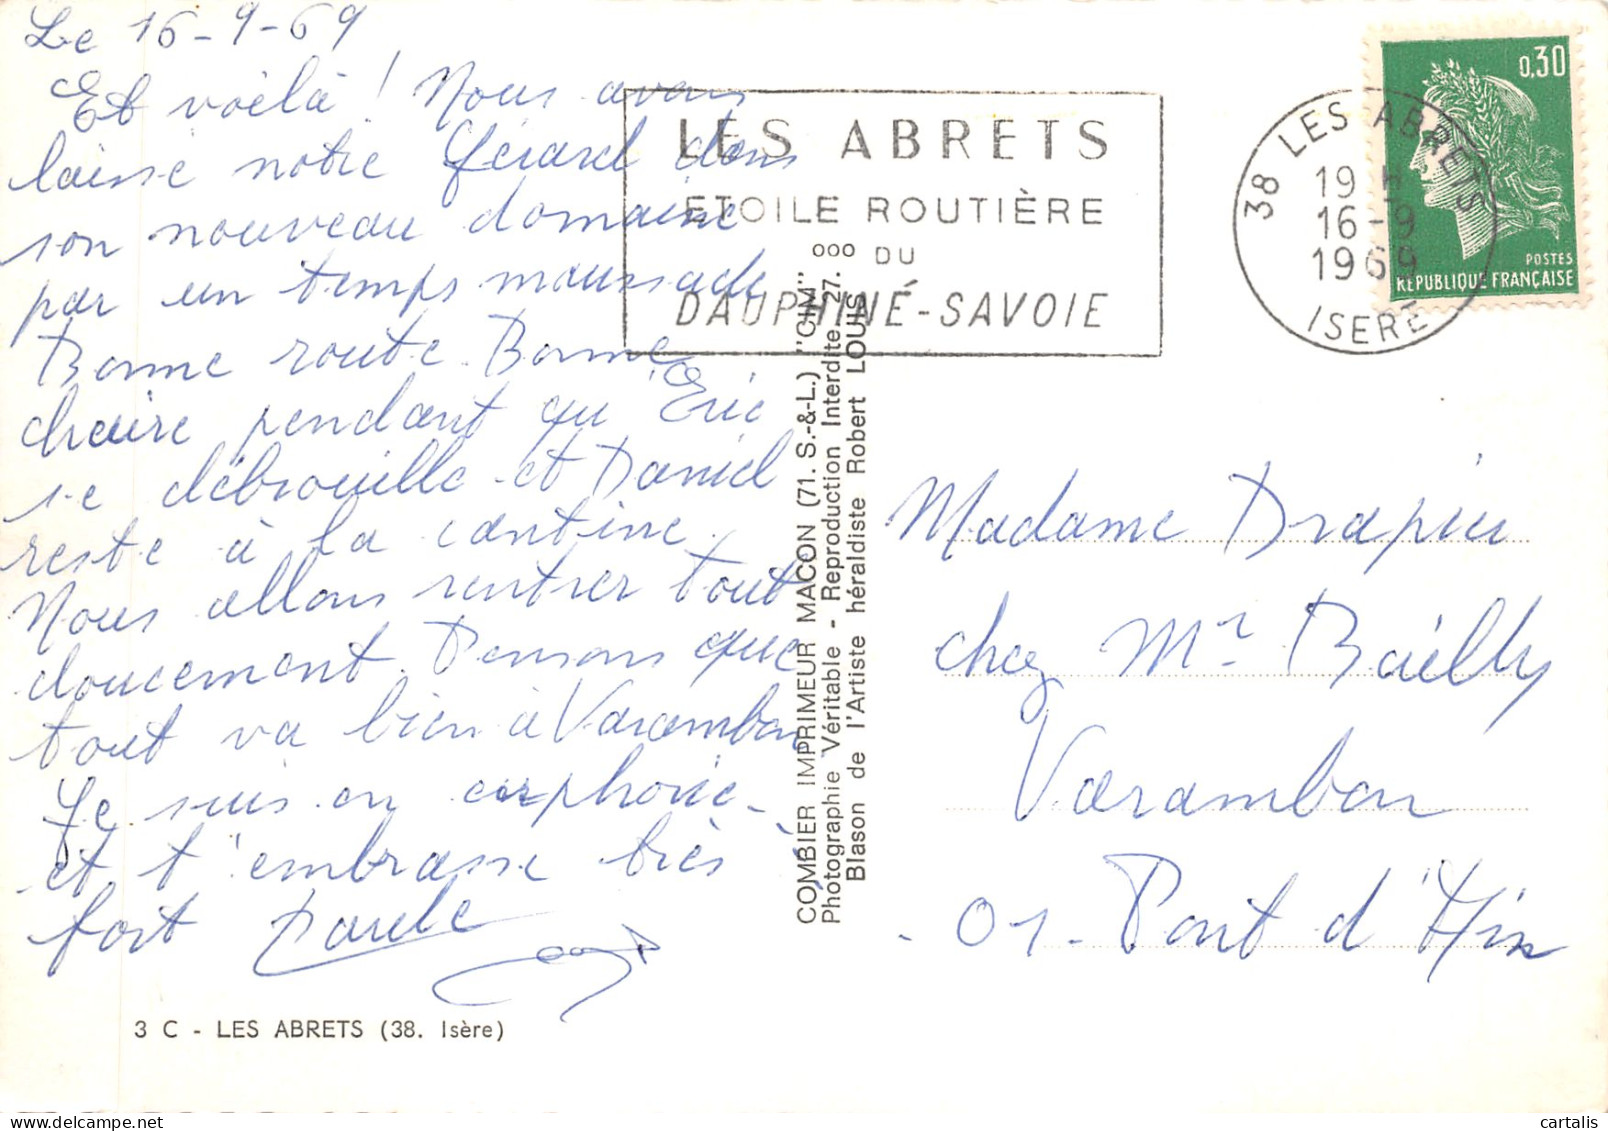 Le 16-9-69
Et voilà ! Nous avons
laissé notre Gérard dans
son nouveau domaine
par un temps maussade
Bonne route. Bonne
chaire pendant qu'Eric
se débrouille et Daniel
reste à la cantine.
Nous allons rentrer tout
doucement. Pensons que
tout va bien à Varambon
Je suis en
et t'embrasse très
fort
3 C - LES ABRETS (38. Isère)
LES ABRETS
ETOILE ROUTIÈRE
DU
DAUPHINÉ-SAVOIE
38 LES ABRETS
19 H
16-9
1969
ISERE
0,30
POSTES
REPUBLIQUE FRANÇAISE
COMBIER IMPRIMEUR MACON (71. S.-&-L.) "CIM"
Photographie Véritable - Reproduction Interdite. 27.
Blason de l'Artiste héraldiste Robert LOUIS
Madame Drapier
chez Mr Bailly
Varambon
01- Pont d'Ain
cartalis sur Delcampe.net